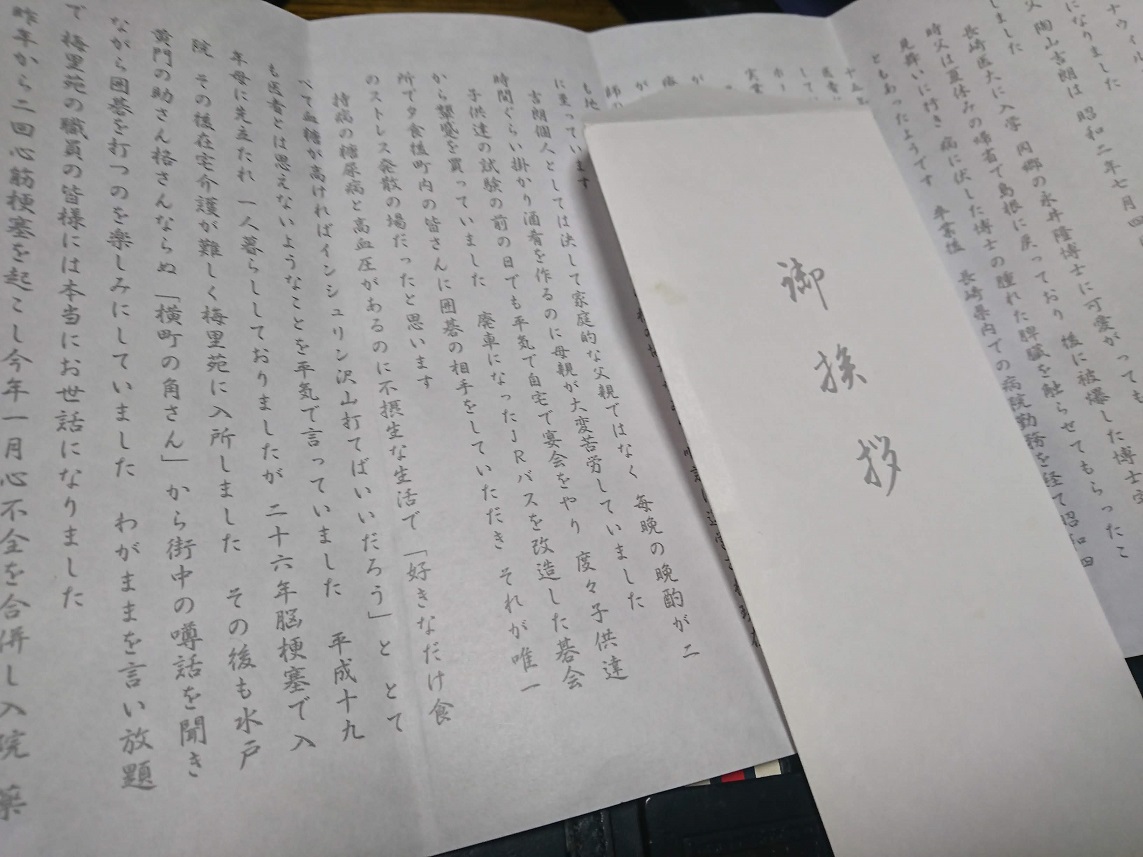 ナウィル
になりました
父 陶山吉朗は 昭和二年七月四
しました
長崎医大に入学 同郷の永井隆博士に可愛がっても
時父は夏休みの帰省で島根に戻っており 後に被爆した博士
見舞いに行き 病に伏した博士の腫れた脾臓を触らせてもらったこ
ともあったようです 卒業後 長崎県内での病院勤務を経て昭和四
に至っています
吉朗個人としては決して家庭的な父親ではなく 毎晩の晩酌が二
時間ぐらい掛かり酒肴を作るのに母親が大変苦労していました
子供達の試験の前の日でも平気で自宅で宴会をやり 度々子供達
から顰蹙を買っていました 廃車になったJRバスを改造した碁会
所で夕食後町内の皆さんに囲碁の相手をしていただき それが唯一
のストレス発散の場だったと思います
持病の糖尿病と高血圧があるのに不摂生な生活で「好きなだけ食
べて血糖が高ければインシュリン沢山打てばいいだろう」と とて
も医者とは思えないようなことを平気で言っていました 平成十九
年母に先立たれ 一人暮らししておりましたが 二十六年脳梗塞で入
院 その後在宅介護が難しく梅里苑に入所しました その後も水戸
黄門の助さん格さんならぬ「横町の角さん」から街中の噂話を聞き
ながら囲碁を打つのを楽しみにしていました わがままを言い放題
で 梅里苑の職員の皆様には本当にお世話になりました
昨年から二回心筋梗塞を起こし今年一月心不全を合併し入院 薬
御挨拶